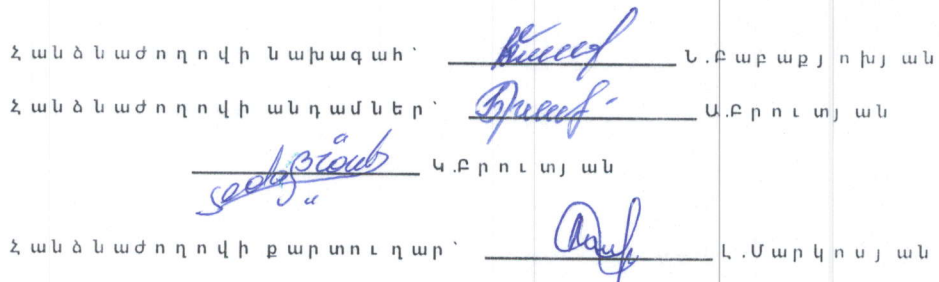 Հանձնաժողովի նախագահ՝ Ն.Բաբաքյոխյան
Հանձնաժողովի անդամներ՝ Ա.Բրուտյան
Կ.Բրուտյան
Հանձնաժողովի քարտուղար՝ Լ.Մարկոսյան